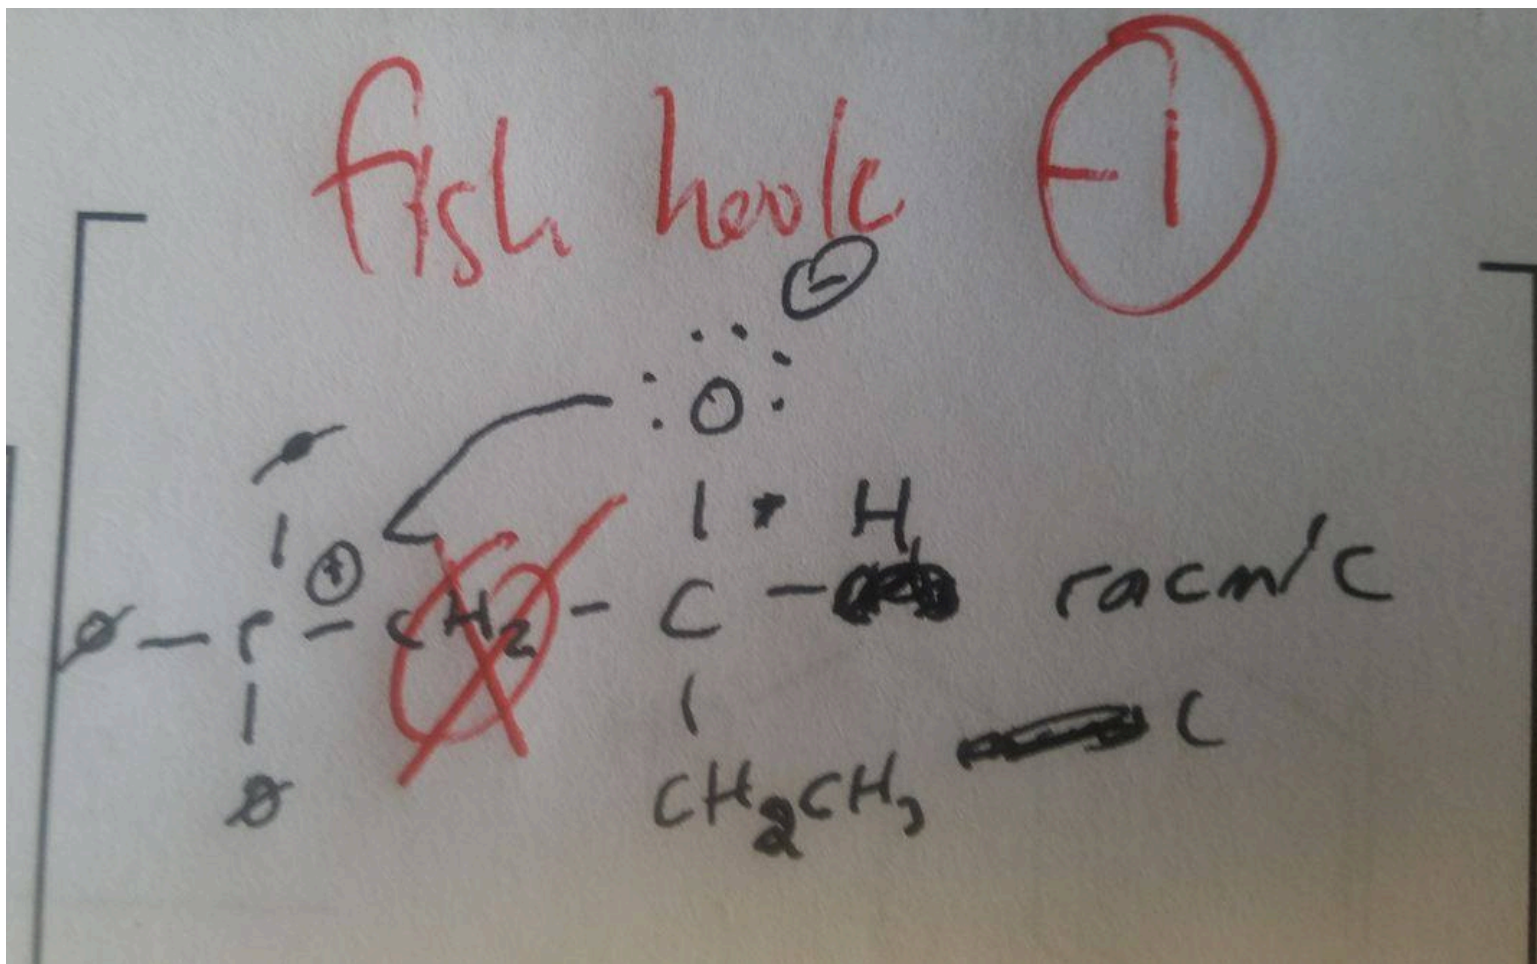 fish hook -1
⊖
:O:
⊕ | * H
Ø - P - CH2 - C - racmic
| |
Ø CH2CH3 C